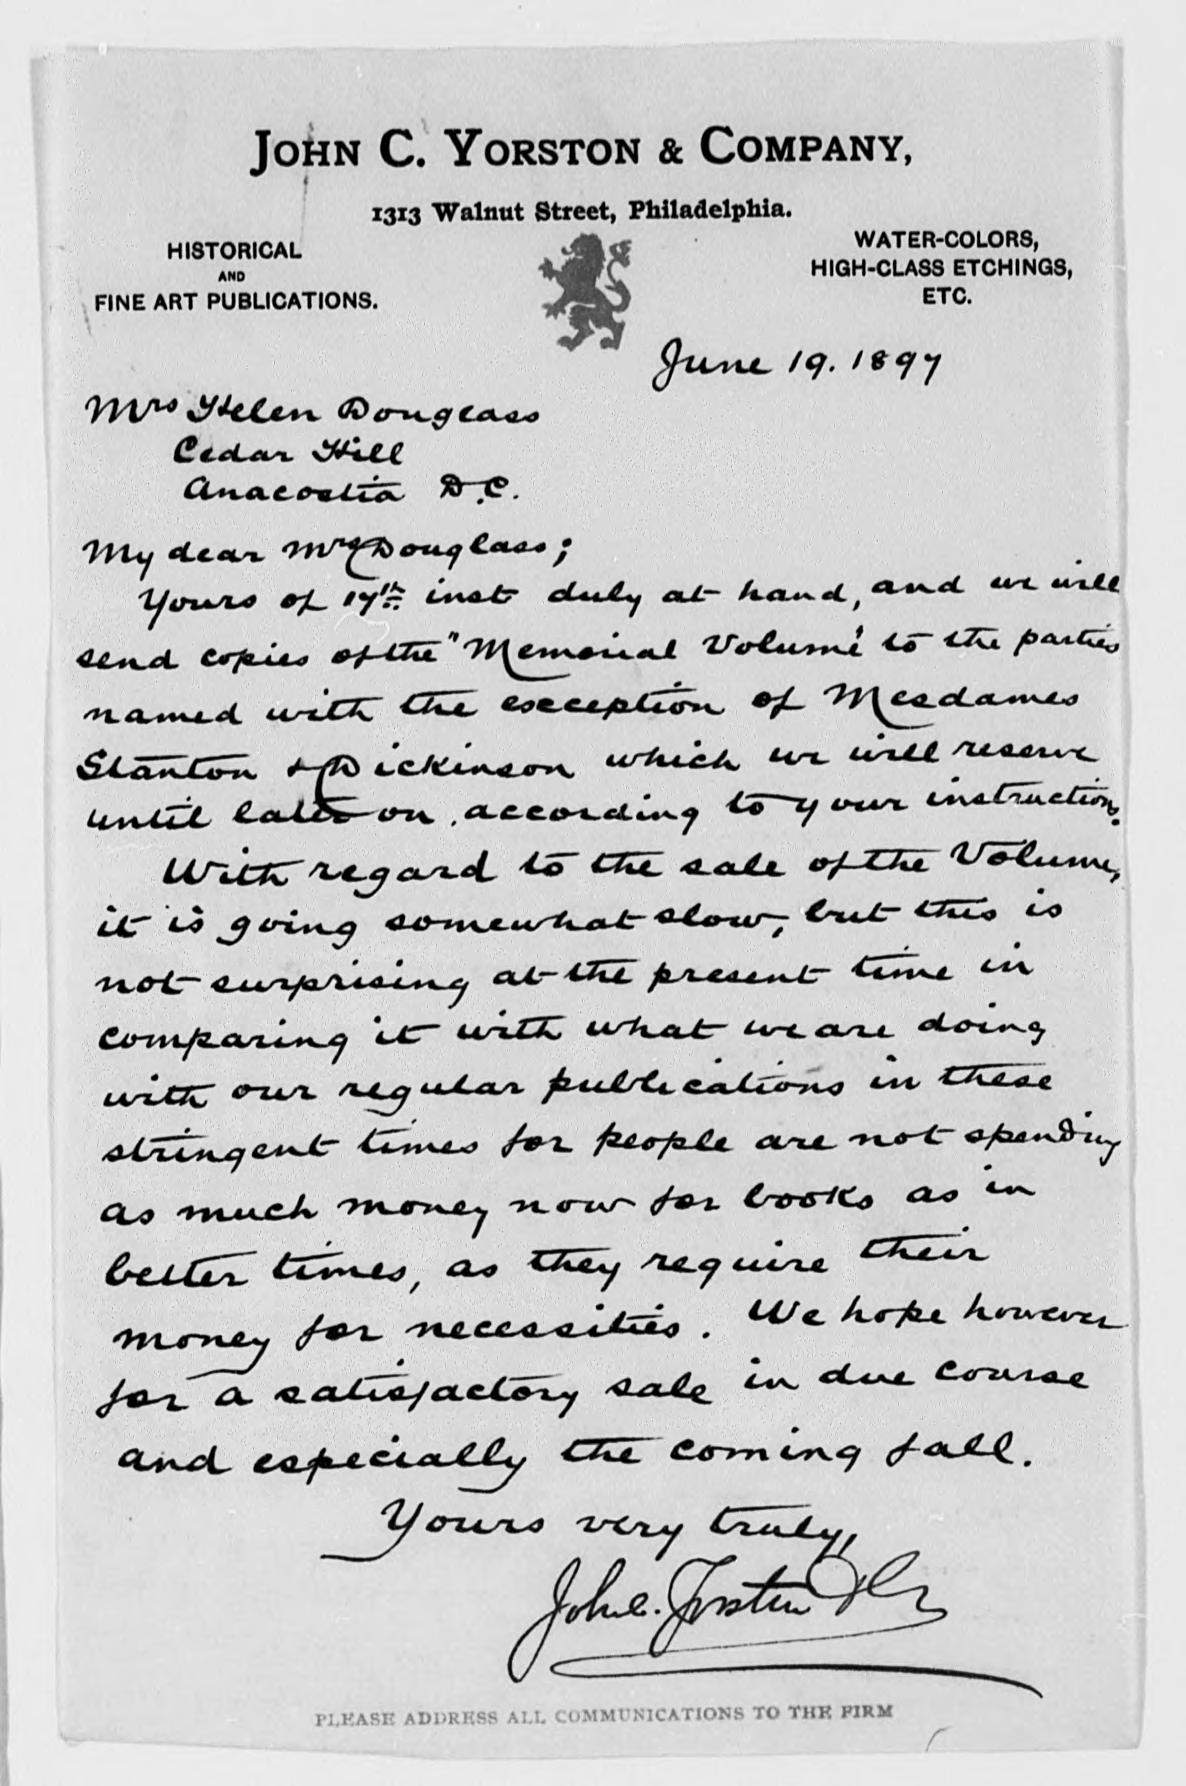 JOHN C. YORSTON & COMPANY,
1313 Walnut Street, Philadelphia.
HISTORICAL
AND
FINE ART PUBLICATIONS.
WATER-COLORS,
HIGH-CLASS ETCHINGS,
ETC.
June 19. 1897
Mrs Helen Douglass
Cedar Hill
Anacostia D.C.
My dear Mrs Douglass;
Yours of 17th inst duly at hand, and we will
send copies of the "Memorial Volume" to the parties
named with the exception of Mesdames
Stanton & Dickinson which we will reserve
until later on, according to your instructions.
With regard to the sale of the Volume,
it is going somewhat slow, but this is
not surprising at the present time in
comparing it with what we are doing
with our regular publications in these
stringent times for people are not spending
as much money now for books as in
better times, as they require their
money for necessities. We hope however
for a satisfactory sale in due course
and especially the coming fall.
Yours very truly,
John C. Yorston & Co
PLEASE ADDRESS ALL COMMUNICATIONS TO THE FIRM